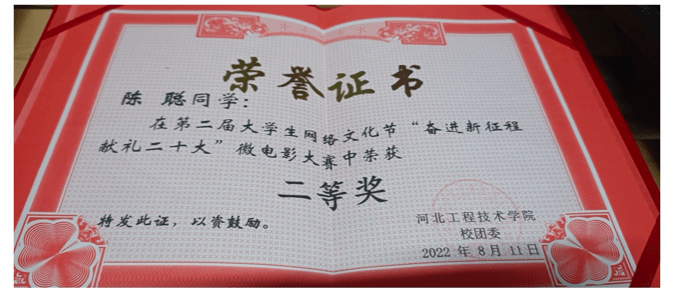 荣誉证书
陈 聪同学：
在第二届大学生网络文化节“奋进新征程
献礼二十大”微电影大赛中荣获
二等奖
特发此证，以资鼓励。
河北工程技术学院
校团委
2022 年 8 月 11 日